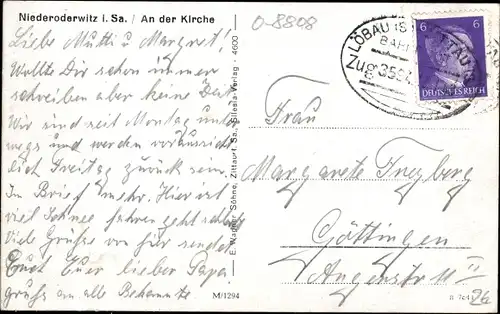 Niederoderwitz i. Sa. / An der Kirche
O-8808
Liebe Mutti u Margret,
Wollte Dir schon immer
schreiben aber keine Zeit
Wir sind seit Montag unter
wegs und werden voraussicht
lich Freitag zurück sein.
Im Brief mehr. Hier ist
viel Schnee fahren geht schlecht
Viele Grüße von für
Euch Euer lieber Papa.
gruß an alle Bekannte
M/1294
E. Wagner Söhne, Zittau i. Sa., Silesia-Verlag · 4600
LÖBAU (S)
Zug 35
6 6
DEUTSCHES REICH
Frau
Margarete
Göttingen
26